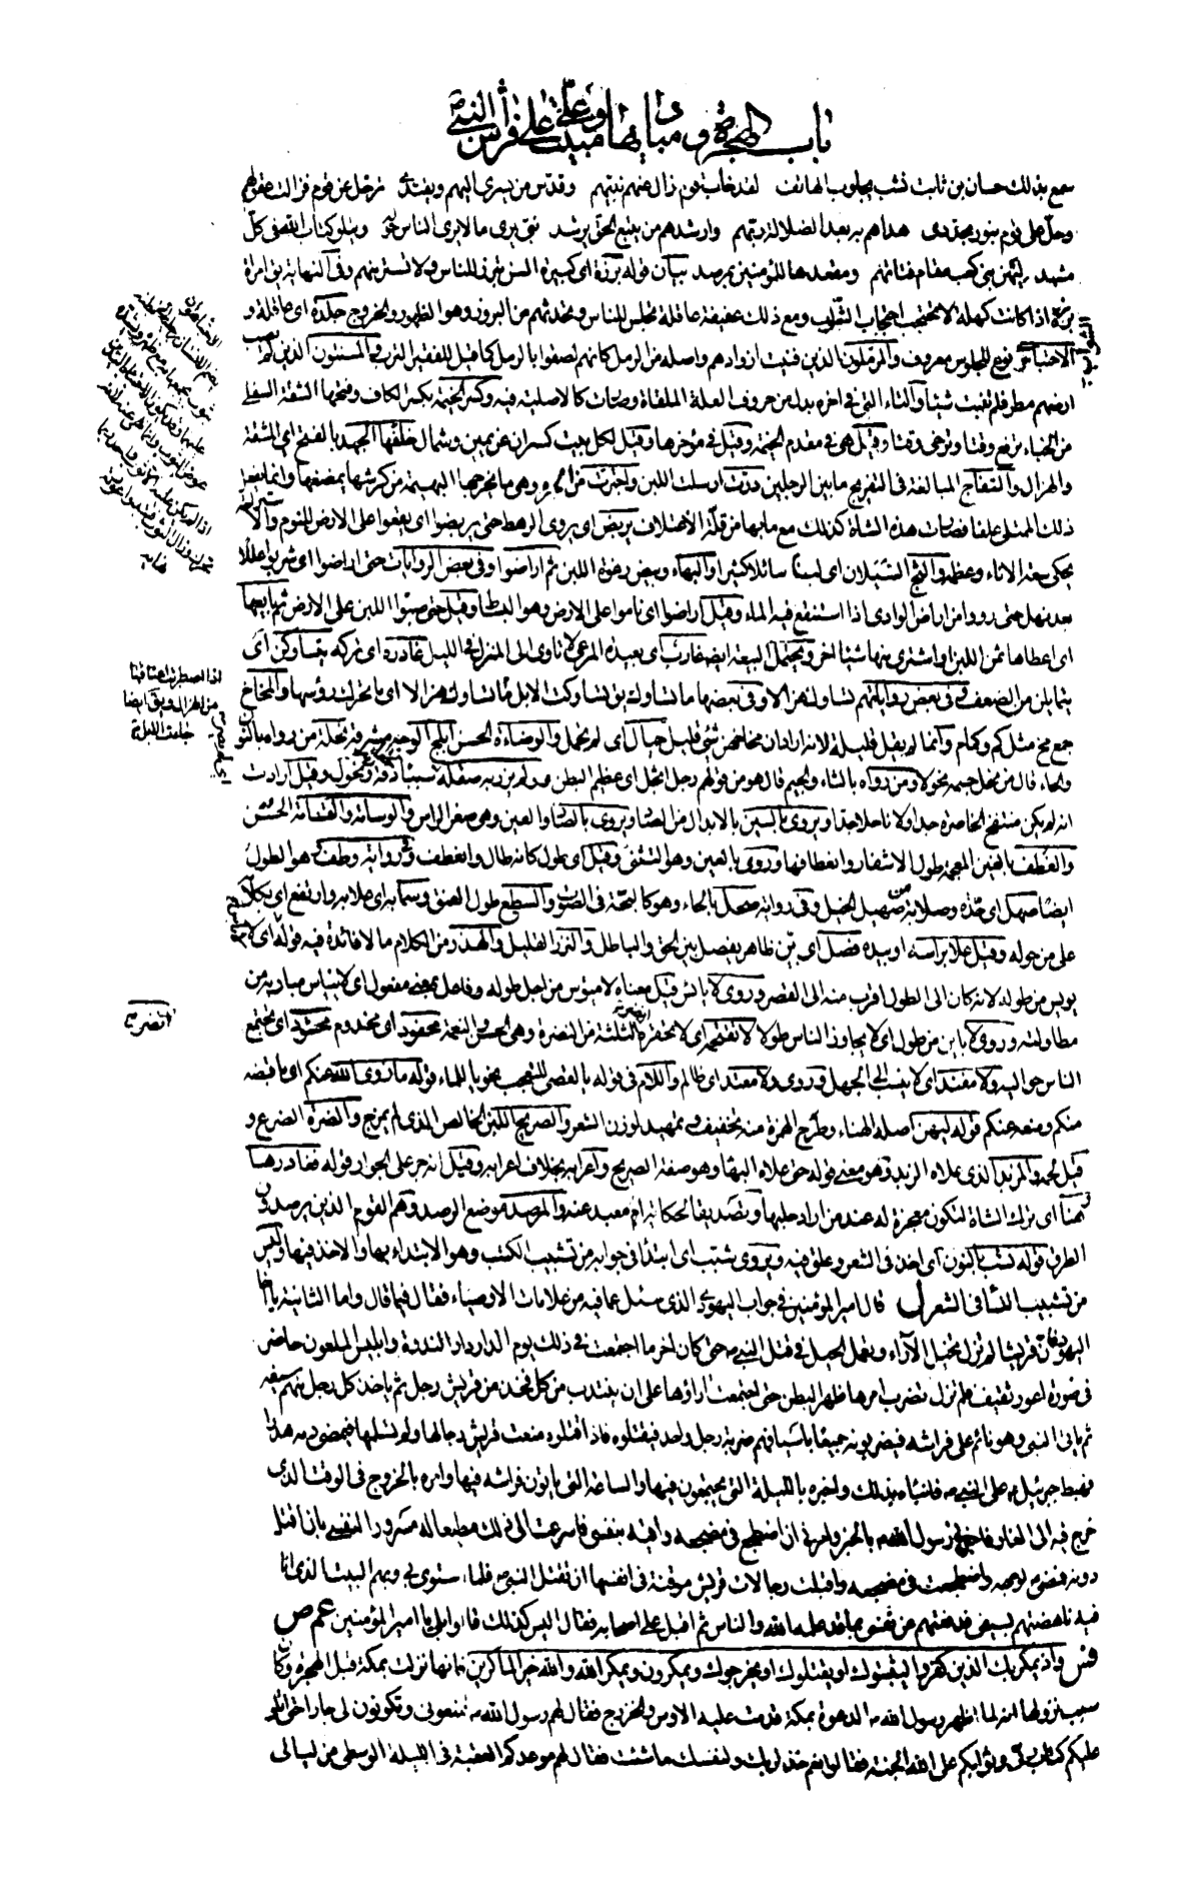 باب الهجرة و مباديها و مبيت علي على فراش النبي ص
سمع بذلك حسان بن ثابت نشب يجاوب الهاتف لقد خاب قوم زال عنهم نبيهم و قدس من يسري اليهم و يغتدي ترحل عن قوم فزالت عقولهم
و حل على قوم بنور مجدد هداهم به بعد الضلالة ربهم وارشدهم من يتبع الحق يرشد نبي يرى ما لا يرى الناس حوله و يتلو كتاب الله في كل
مشهد ليهن بني كعب مقام فتاتهم و مقعدها للمؤمنين بمرصد بيان قوله برزة اي كبيرة السن تبرز للناس و لا تستتر منهم و في النهاية يق امرأة
برزة اذا كانت كهلة لا تحتجب احتجاب الشواب و مع ذلك عفيفة عاقلة تجلس للناس و تحدثهم من البروز و هو الظهور و الخروج جلدة اي عاقلة و
الاحتباء نوع الجلوس معروف و المرملون الذين فنيت ازوادهم و اصله من الرمل كانهم لصقوا بالرمل كما قيل للفقير الترب و المسنتون الذين لم يصب
ارضهم مطر فلم تنبت شيئا و التاء التي في اخره بدل من حروف العلة الملقاة و صارت كالاصلية فيه و كسر الخيمة بكسر الكاف و فتحها الشقة السفلى
من الخباء ترفع وقتا و ترخى وقتا و قيل هي في مقدم الخيمة و قيل في مؤخرها و قيل لكل بيت كسران عن يمين و شمال خلفها الجهد بالفتح اي المشقة
و الهزال و التفاج المبالغة في التفريج ما بين الرجلين و درت ارسلت اللبن و اجترت من الجرة و هي ما تخرجها البهيمة من كرشها تمضغها و انما يفعل
ذلك الممتلي علفا فصارت هذه الشاة كذلك مع ما بها من قلة الاعتلاف يربض اي يروي الرهط حتى يربضوا اي يقعوا على الارض للنوم و الاستراحة
يحكي سعة الاناء و عظمه و الثج السيلان اي لبنا سائلا كثيرا و البهاء وبيص رغوة اللبن ثم اراضوا و في بعض الروايات حتى اراضوا اي شربوا عللا
بعد نهل حتى رووا من اراض الوادي اذا استنقع فيه الماء و قيل اراضوا اي ناموا على الارض و هو البساط و قيل حتى صبوا اللبن على الارض ثم بايعها
اي اعطاها ثمن اللبن او اشترى منها شيئا اخر و يحتمل البيعة ايض عازب اي بعيدة المرعى لا تاوي الى المنزل في الليل غادره اي تركه يتساوكن اي
يتمايلن من الضعف و في بعض رواياتهم تشاوك هزالا و في بعضها ما تساوك يق تساوكت الابل ما تساوك هزالا اي ما تحرك رؤسها و المخاخ
جمع مخ مثل كم و كمام و انما لم يقل قليلة لانه اراد ان مخاخهن شيء قليل حيال اي لم تحمل و الوضاءة الحسن ابلج الوجه مشرقه نحلة من رواه بالنون
و الحاء قال من نحل جسمه نحولا و من رواه بالثاء و الجيم قال هو من قولهم رجل اثجل اي عظيم البطن و لم تزر به صقلة اي دقة و نحول و قيل ارادت
انه لم يكن منتفخ الخاصرة جدا و لا ناحلا جدا و يروى بالسين بالابدال من الصاد و يروى بالصاد و العين و هي صغر الراس و الوسامة و القسامة الحسن
و الغطف بالغين المعجمة طول الاشفار و انعطافها و روي بالعين و هو التثني و قيل اي طول كانه طال و انعطف و في رواية وطف و هو الطول
ايضا صهل اي حدة و صلابة من صهيل الخيل و في رواية صحل بالحاء و هو كالبحة في الصوت و السطع طول العنق و سما به اي علا به و ارتفع اي بكلامه
على من حوله و قيل علا براسه او بيده فصل اي بين ظاهر يفصل بين الحق و الباطل و النزر القليل و الهذر من الكلام ما لا فائدة فيه قوله اي لا
يويس من طوله لانه كان الى الطول اقرب منه الى القصر و روي لا يائس قيل معناه لا ميؤس من اجل طوله و فاعل بمعنى مفعول اي لا يتياس مباريه من
مطاولته و روي لا باين من طول اي لا يجاوز الناس طولا لا تقتحمه اي لا تحتقره انضر الثلثة من النضرة و هي الحسن و النعمة محفود اي مخدوم محشود اي يجتمع
الناس حواليه و لا مفند اي لا ينسب الى الجهل و روي و لا معتد اي ظالم و اللام في قوله يا لقصي للتعجب نحو يا للماء قوله ما زوى الله عنكم اي ما قبضه
منكم و منعه عنكم قوله ليهن اصله الهناء و طرح الهمزة منه تخفيف و تمهيد لوزن الشعر و الصريح اللبن الخالص الذي لم يمزج و الضرة الضرع و
قيل لحمه و المزبد الذي علاه الزبد و هو معنى قوله حتى علاه البهاء و هو صفة الصريح و اعرابه بخلاف اعرابه و قيل انه جر على الجوار قوله فغادرها
رهنا اي ترك الشاة لتكون معجزة له عند من اراد حلبها و تصديقا لحكاية ام معبد عنه و المرصد موضع الرصد و هم القوم الذين يرصدون
الطرق قوله نشب بالنون اي اخذ في الشعر و علق فيه و يروى شبب اي ابتدا في جوابه من تشبيب الكتب و هو الابتداء بها و الاخذ فيها و ليس
من تشبيب النساء في الشعر ل قال امير المؤمنين في جواب اليهودي الذي سئل عما فيه من علامات الاوصياء فقال فيما قال و اما الثانية يا اخا
اليهود فان قريشا لم تزل تخيل الآراء و تعمل الحيل في قتل النبي ص حتى كان اخر ما اجتمعت في ذلك يوم الدار دار الندوة و ابليس الملعون حاضر
في صورة اعور ثقيف فلم تزل تضرب امرها ظهر البطن حتى اجتمعت آراؤها على ان ينتدب من كل فخذ من قريش رجل ثم ياخذ كل رجل منهم سيفه
ثم ياتي النبي و هو نائم على فراشه فيضربونه جميعا باسيافهم ضربة رجل واحد فيقتلوه فاذا قتلوه منعت قريش رجالها و لم تسلمها فيمضي دمه هدرا
فهبط جبرئيل ع على النبي ص فانباه بذلك و اخبره بالليلة التي يجتمعون فيها و الساعة التي ياتون فراشه فيها و امره بالخروج في الوقت الذي
خرج فيه الى الغار فاخبرني رسول الله ص بالخبر و امرني ان اضطجع في مضجعه و اقيه بنفسي فاسرعت الى ذلك مطيعا له مسرورا لنفسي بان اقتل
دونه فمضى لوجهه و اضطجعت في مضجعه و اقبلت رجالات قريش موقنة في انفسها ان تقتل النبي ص فلما استوى بي و بهم البيت الذي انا
فيه ناهضتهم بسيفي فدفعتهم عن نفسي بما قد علمه الله و الناس ثم اقبل على اصحابه فقال اليس كذلك قالوا بلى يا امير المؤمنين عم ص
فس و اذ يمكر بك الذين كفروا ليثبتوك او يقتلوك او يخرجوك و يمكرون و يمكر الله و الله خير الماكرين فانها نزلت بمكة قبل الهجرة و كان
سبب نزولها انه لما اظهر رسول الله ص الدعوة بمكة قدمت عليه الاوس و الخزرج فقال لهم رسول الله ص تمنعوني و تكونون لي جارا حتى اتلو
عليكم كتاب ربي و ثوابكم على الله الجنة فقالوا نعم خذ لربك و لنفسك ما شئت فقال لهم موعدكم العقبة في الليلة الوسطى من ليالي